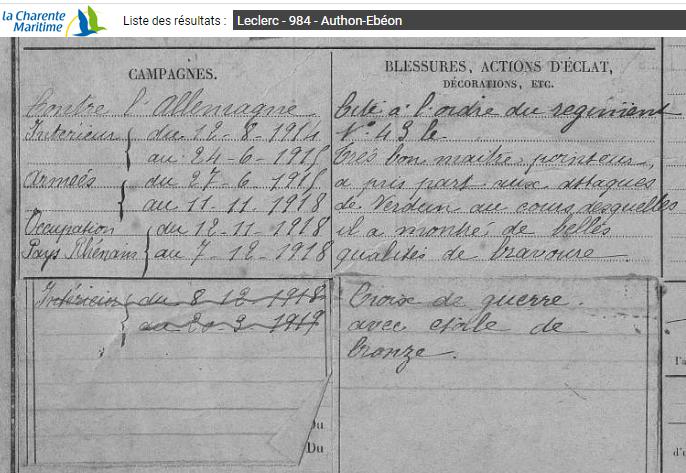 la Charente
Maritime
Liste des résultats : Leclerc - 984 - Authon-Ebéon
CAMPAGNES.
Contre l'Allemagne
Intérieur { du 12-8-1914
au 24-6-1915
Armées { du 27-6-1915
au 11-11-1918
Occupation { du 12-11-1918
Pays Rhénans au 7-12-1918
Intérieur { du 8 12 1918
au 20-3-1919
Du
Du
BLESSURES, ACTIONS D'ÉCLAT,
DÉCORATIONS, ETC.
Cité à l'ordre du régiment
N° 43 le
Très bon maitre pointeur,
a pris part aux attaques
de Verdun au cours desquelles
il a montré de belles
qualités de bravoure
Croix de guerre.
avec étoile de
bronze.